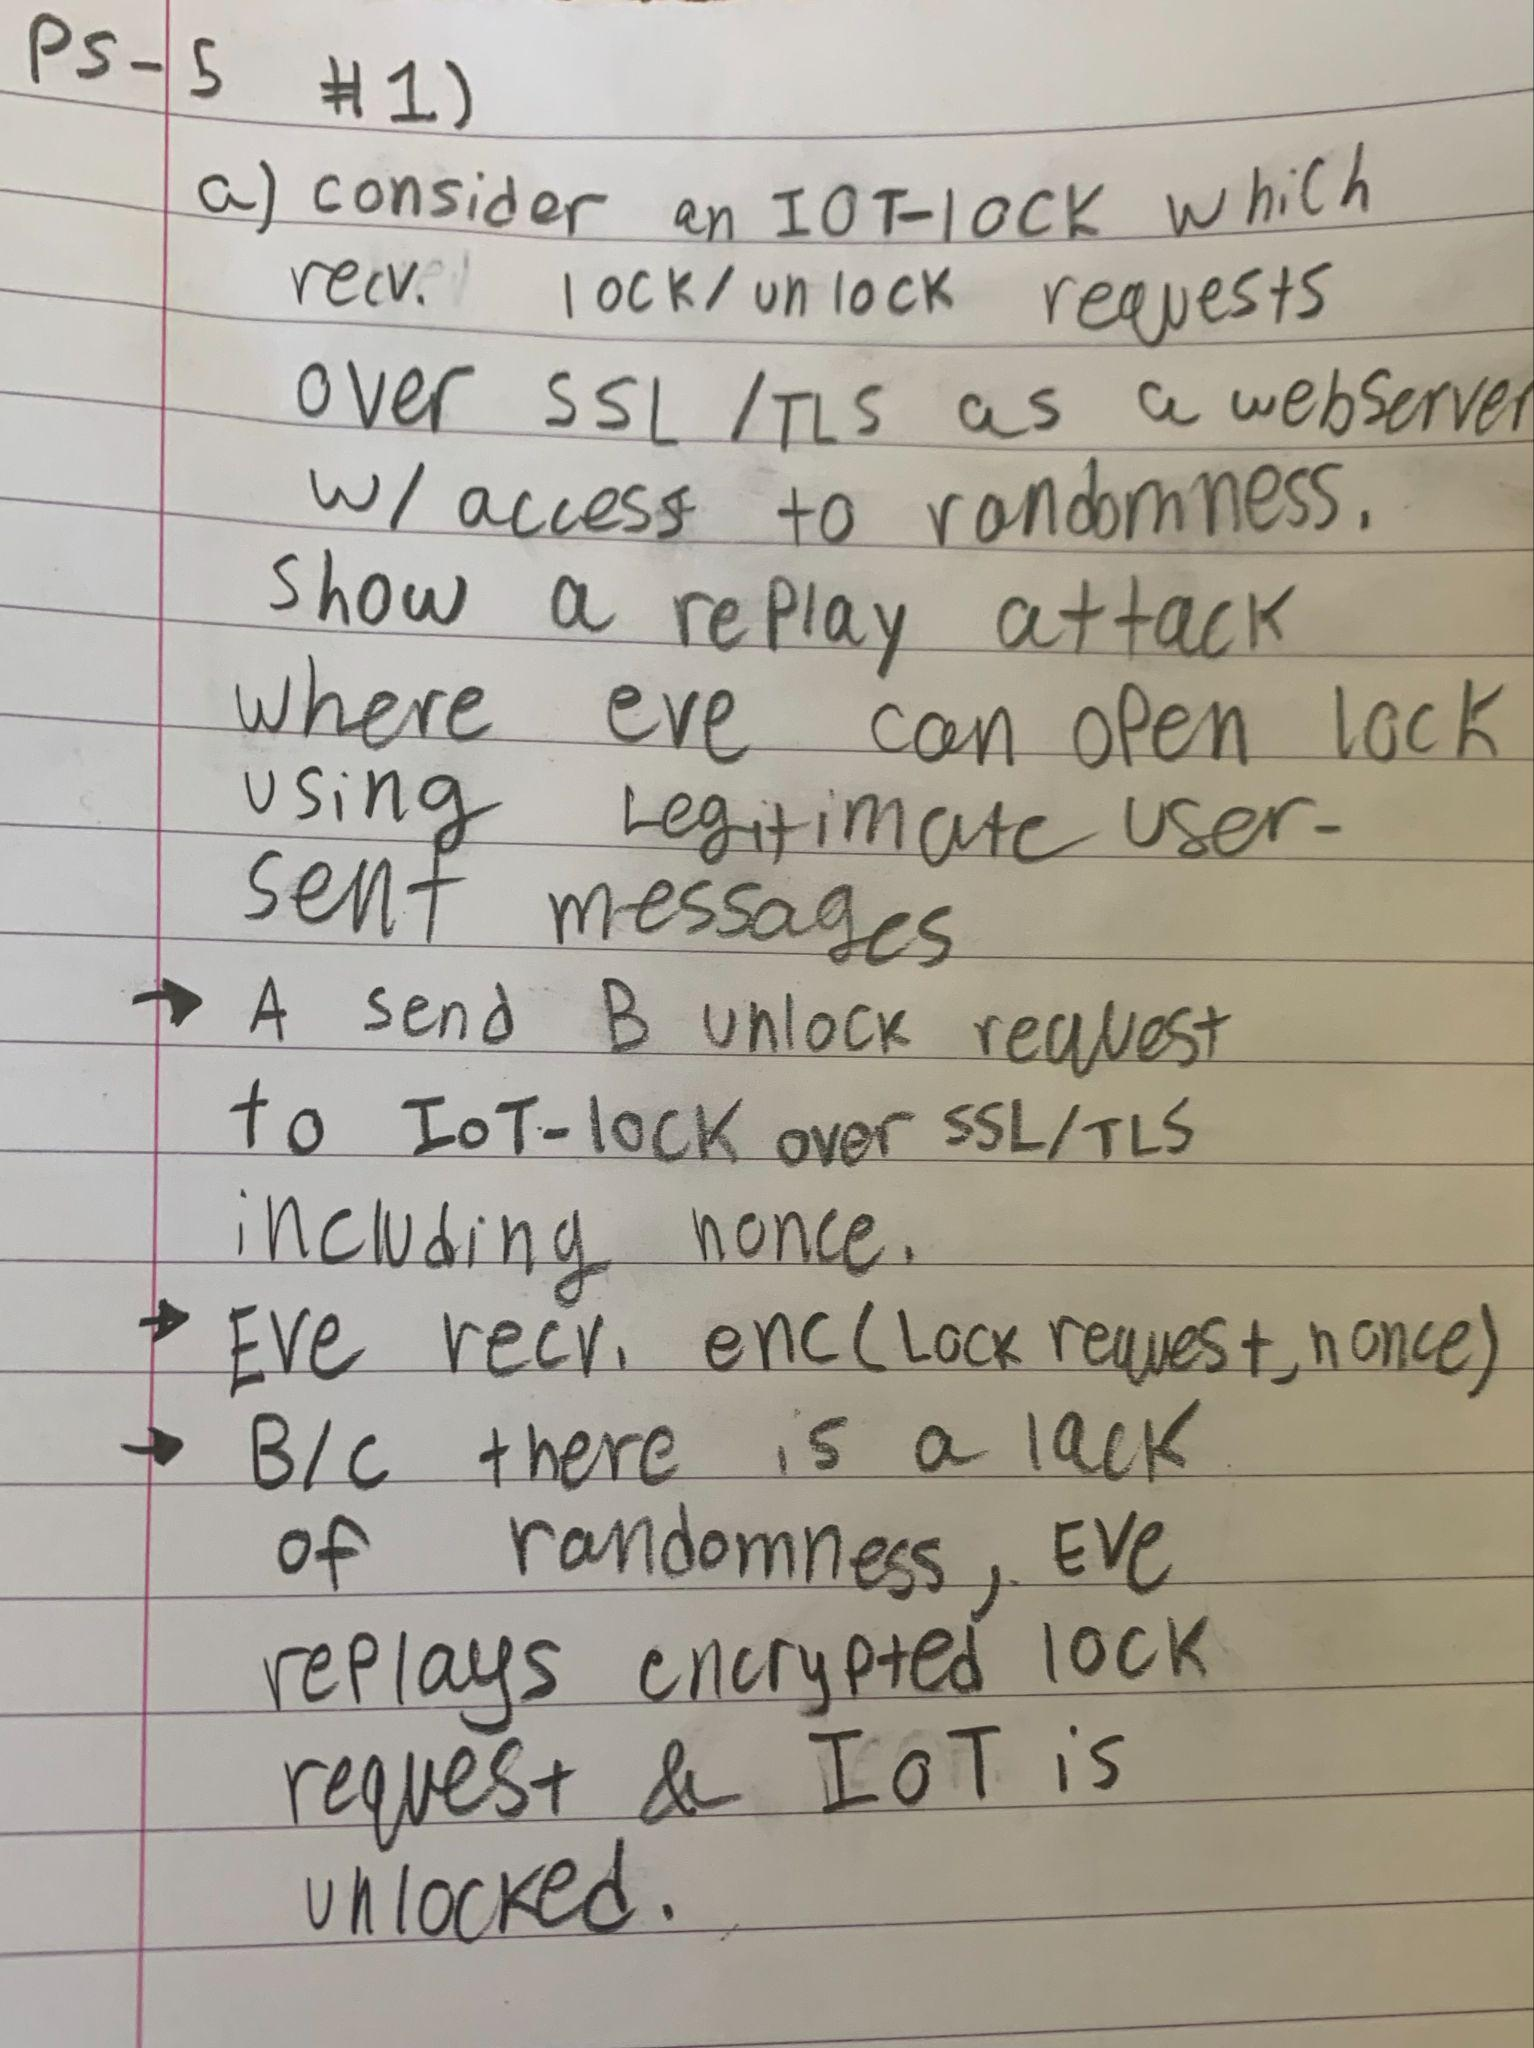 PS-5 #1)
a) consider an IOT-lock which
recv. lock/unlock requests
over SSL/TLS as a webserver
w/ access to randomness.
show a replay attack
where eve can open lock
using Legitimate user-
sent messages
→ A send B unlock request
to IoT-lock over SSL/TLS
including nonce.
→ Eve recv. enc(Lock request, nonce)
→ B/c there is a lack
of randomness, Eve
replays encrypted lock
request & IoT is
unlocked.